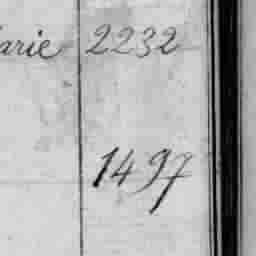 arie 2232
1497